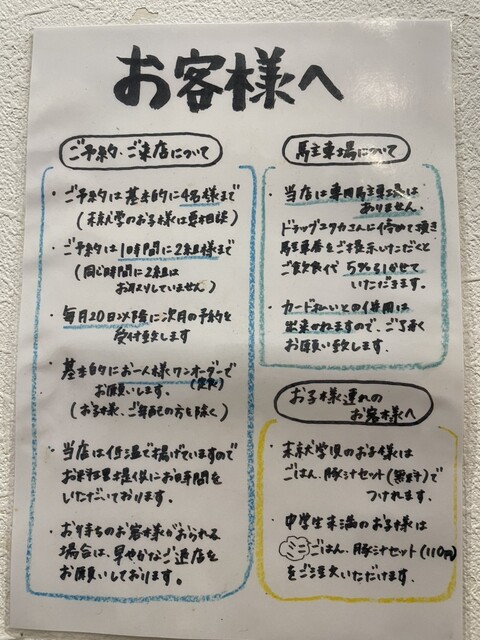 お客様へ
ご予約、ご来店について
・ご予約は基本的に4名様まで
(未就学のお子様は要相談)
・ご予約は1時間に2組様まで
(同じ時間に2組は
お取りしていません。)
・毎月20日以降に次月の予約を
受付致します
・基本的にお一人様ワンオーダーで
お願いします。(定食)
(お子様、ご年配の方を除く)
・当店は低温で揚げていますので
お料理提供にお時間を
いただいております。
・お待ちのお客様がおられる
場合は、早やかなご退店を
お願いしております。
駐車場について
・当店は専用駐車場は
ありません。
ドラッグユタカさんに停めて頂き
駐車券をご提示いただくと
ご飲食代 5%引かせて
いただきます。
・カード払いとの併用は
出来かねますので、ご了承
お願い致します。
お子様連れの
お客様へ
・未就学児のお子様は
ごはん、豚汁セット(無料)で
つけれます。
・中学生未満のお子様は
ミニごはん、豚汁セット(110円)
をご注文いただけます。